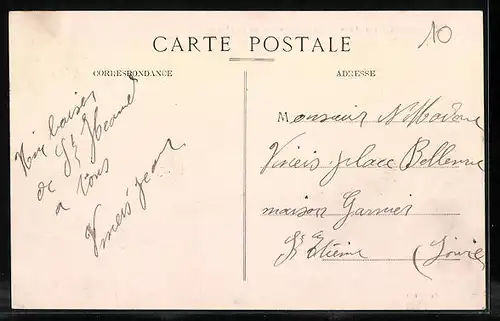 10
CARTE POSTALE
CORRESPONDANCE
ADRESSE
baiser
de St
a vous
Vineis Jean
Monsieur & Madame
Vineis place Bellevue
maison Garnier
St Etienne (Loire)